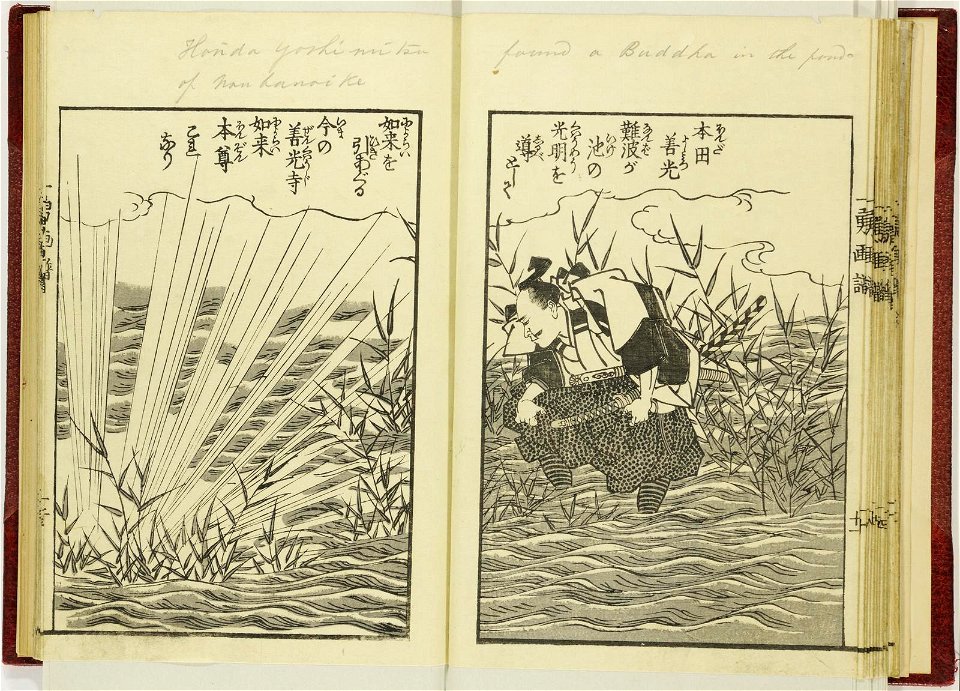 Honda Yoshimitsu
of Nanbanoike
found a Buddha in the pond
本田
善光
難波が
池の
光明を
導として
如来を
引あぐる
今の
善光寺
如来
本尊
これ
なり
一勇画譜